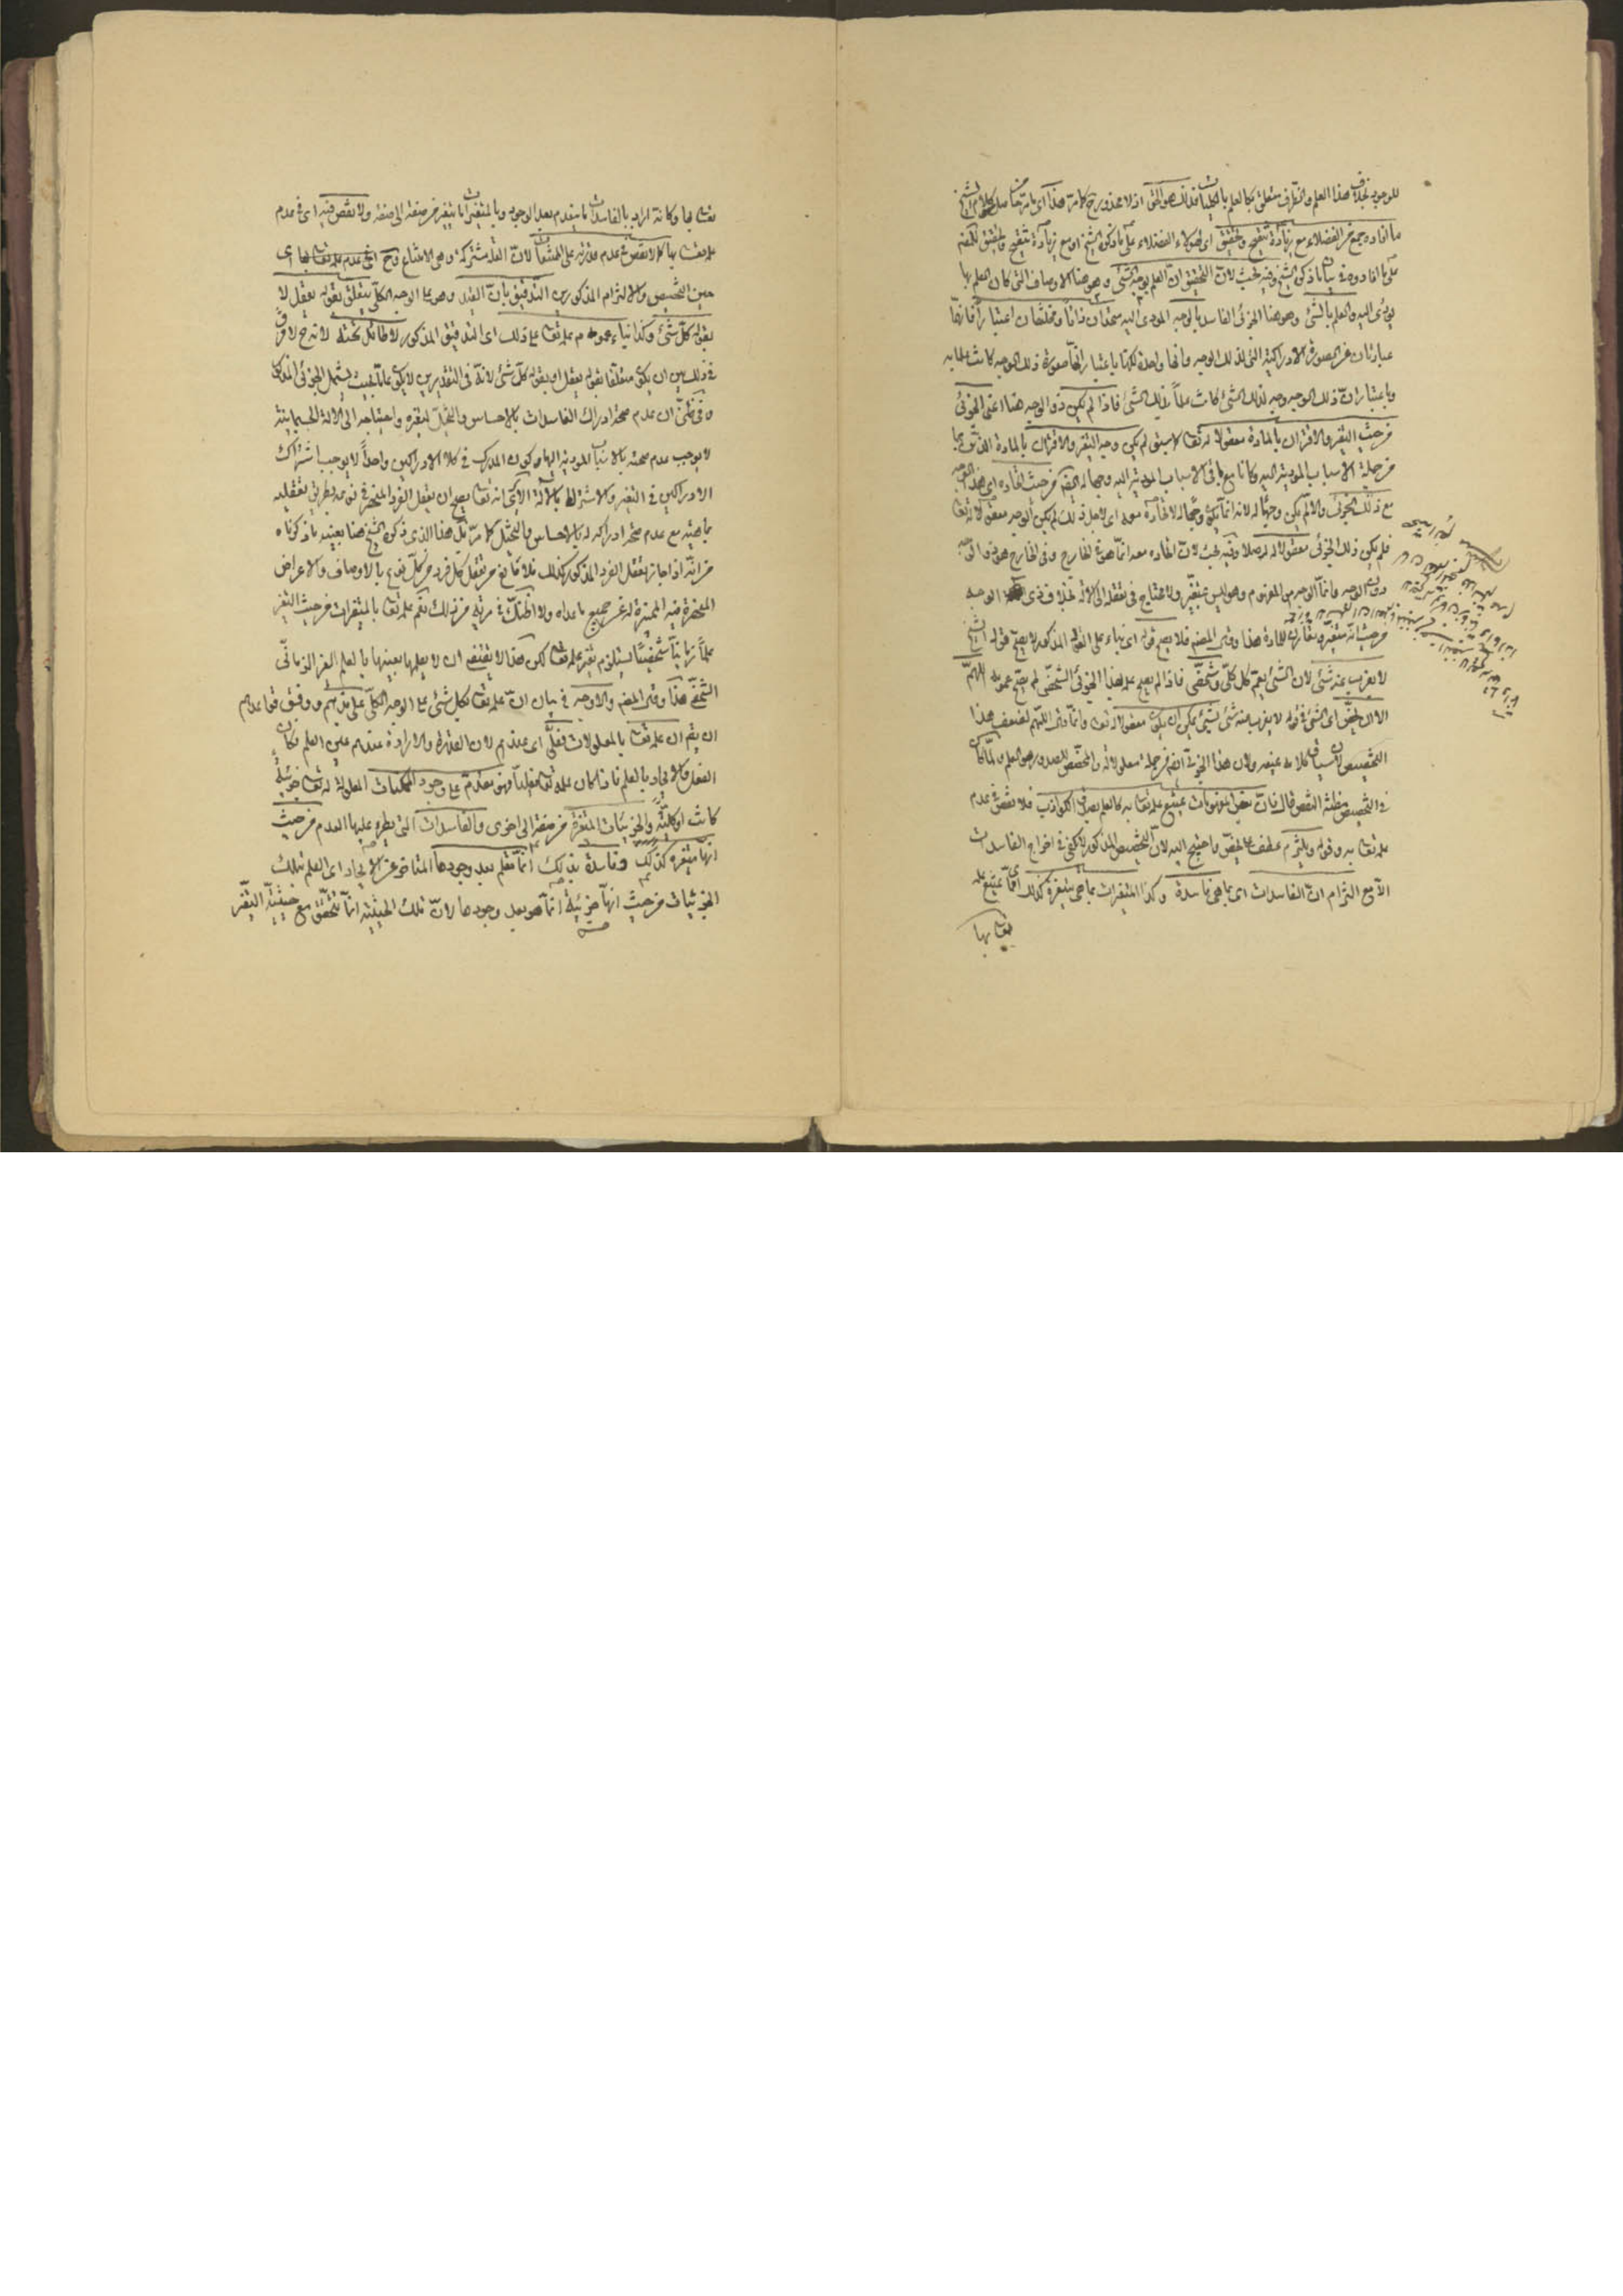 للوجود بخلاف هذا العلم والتلازم متعلق بها لعلم بالكليات فذلك هو الحق اذ لا محذور فيه كما مر هذا اى ما مر حاصل كلام الشيخ
ما افاده جمع من الفضلاء مع زيادة تنقيح وتحقيق اى لهؤلاء الفضلاء على ما ذكره الشيخ او مع زيادة تنقيح وتحقيق للمض
على ما افادوه فى بيان ما ذكره الشيخ وفيه بحث لان التحقيق ان العلم بوجه الشئ وهو هنا الاوصاف التى كان العلم بها
يؤدى اليه والعلم بالشئ وهو هنا الجزئى الفاسد بالوجه المودى اليه متحدان ذاتاً ومختلفان اعتباراً فانهما
عبارتان عن الصورة الادراكية التى لذلك الوجه وانها واحدة لكنها باعتبار انها صورة ذلك الوجه كانت علما به
وباعتبار ان ذلك الوجه وجه لذلك الشئ كانت علماً بذلك الشئ فاذا لم يكن ذو الوجه هنا اعنى الجزئى
من حيث التغير والاقتران بالمادة معقولا له تعالى لا سبق لم يكن وجه التغير والاقتران بالمادة الذى هو بها
من جملة الاسباب المودية اليه وكانا مع باقى الاسباب المودية اليه وجها له ايضا من حيث اتحاده اى هذا الوجه
مع ذلك الجزئى والا لم يكن وجهاً له لانه انما يكون وجها له لاتحاده معه اى لاجل ذلك لم يكن الوجه معقولا له تعالى
فلم يكن ذلك الجزئى معقولا له اصلا وفيه بحث لان اتحاده معه انما هو فى الخارج وفى الخارج هو ذو الوجه
دون الوجه وانما الوجه هو المفهوم وهو ليس بمتغير ولا يحتاج فى تعقله الى الالة بخلاف ذى الوجه
من حيث انه متغير ومقارن للمادة هذا وقول المض فلا يصح قوله اى بناء على القول المذكور لا يصح قوله الشيخ
لا يعزب عنه شئ لان الشئ يعم كل كلى وشخصى فاذا لم يصح علمه بهذا الجزئى الشخصى لم يصح عمومه اللهم
الا ان يخص اى الشئ فى قوله لا يعزب عنه شئ بشئ يمكن ان يكون معقولا له تعالى وانما قال اللهم لضعف هذا
التخصيص لان سياق كلامه غيره ولان هذا الجزئى ايضا من جملة معلولاته والمخصص للصدور هو العلم ولما كان
فى التخصيص مظنة النقص قال فان بعض المفهومات يمتنع علمه تعالى به كالعلم بصدق الكواذب فلا نقص فى عدم
علمه تعالى به وقوله ويلتزم عطف على يخص واحتيج اليه لان التخصيص المذكور لا يكفى فى اخراج الفاسدات
الا مع التزام ان الفاسدات اى بما هى فاسدة وكذا المتغيرات بما هى متغيرة كذلك اى مما يمتنع علمه
تعالى بها
تعالى بها وكانه اراد بالفاسدات ما ينعدم بعد الوجود وبالمتغيرات ما يتغير من صفة الى صفة ولا نقص فيه اى فى عدم
علمه تعالى بها كما لا نقص فى عدم قدرته على الممتنعات لان العلة مشتركة وهى الامتناع وح اى فى عدم علمه تعالى بها اى
حين التخصيص والالتزام المذكورين التدقيق بان القيد وهو على الوجه الكلى يتعلق بقوله يعقل لا
بقوله كل شئ وكذا بناء عموم علمه تعالى على ذلك اى التدقيق المذكور لا طائل تحته لانه ح لا فرق
فى ذلك بين ان يكون متعلقا بقوله يعقل او بقوله كل شئ لانه فى التقديرين لا يكون عاماً بحيث يشمل الجزئى المذكور
وفى ظنى ان عدم صحة ادراك الفاسدات بالاحساس والتخيل لتغيره واحتياجه الى الالة الجسمانية
لا يوجب عدم صحته بالاسباب المودية اليها وكون المدرك فى كلا الادراكين واحداً لا يوجب اشتراك
الادراكين فى التغير والاشتراط بالآلة الا ترى انه تعالى يصح ان يعقل الفرد المنحصر فى نوعه بطريق تعقله
ماهيته مع عدم صحة ادراكه له بالاحساس والتخيل كما مر بل هذا الذى ذكره الشيخ هنا بعينه ما ذكرناه
من انه اذا جاز تعقل الفرد المذكور كذلك فلا مانع من تعقل كل فرد من كل نوع بالاوصاف والاعراض
المنحصرة فيه المميزة له عن جميع ما عداه ولا اظنك فى مرية من ذلك نعم علمه تعالى بالمتغيرات من حيث التغير
علماً زمانياً شخصياً يستلزم تغير علمه تعالى لكن هذا لا يقتضى ان لا يعلمها بعينها بالعلم الغير الزمانى
الشخصى هذا وقول المض والاوجه فى بيان ان علمه تعالى بكل شئ على الوجه الكلى على مذهبهم ووفق قواعدهم
ان يقم ان علمه تعالى بالمعلولات فعلى اى عندهم لان القدرة والارادة عندهم عين العلم فكان
الفعل والايجاد بالعلم فاذا كان علمه تعالى فعلياً فهو متقدم على وجود الممكنات المعلولة له تعالى جزئية
كانت او كلية والجزئيات المتغيرة من صفة الى اخرى والفاسدات التى يطرء عليها العدم من حيث
انها متغيرة كذلك وفاسدة بذلك انما تعلم بعد وجودها المتاخر عن الايجاد اى العلم بتلك
الجزئيات من حيث انها جزئية انما هو بعد وجودها لان تلك الحيثية انما تتحقق مع حيثية التغير